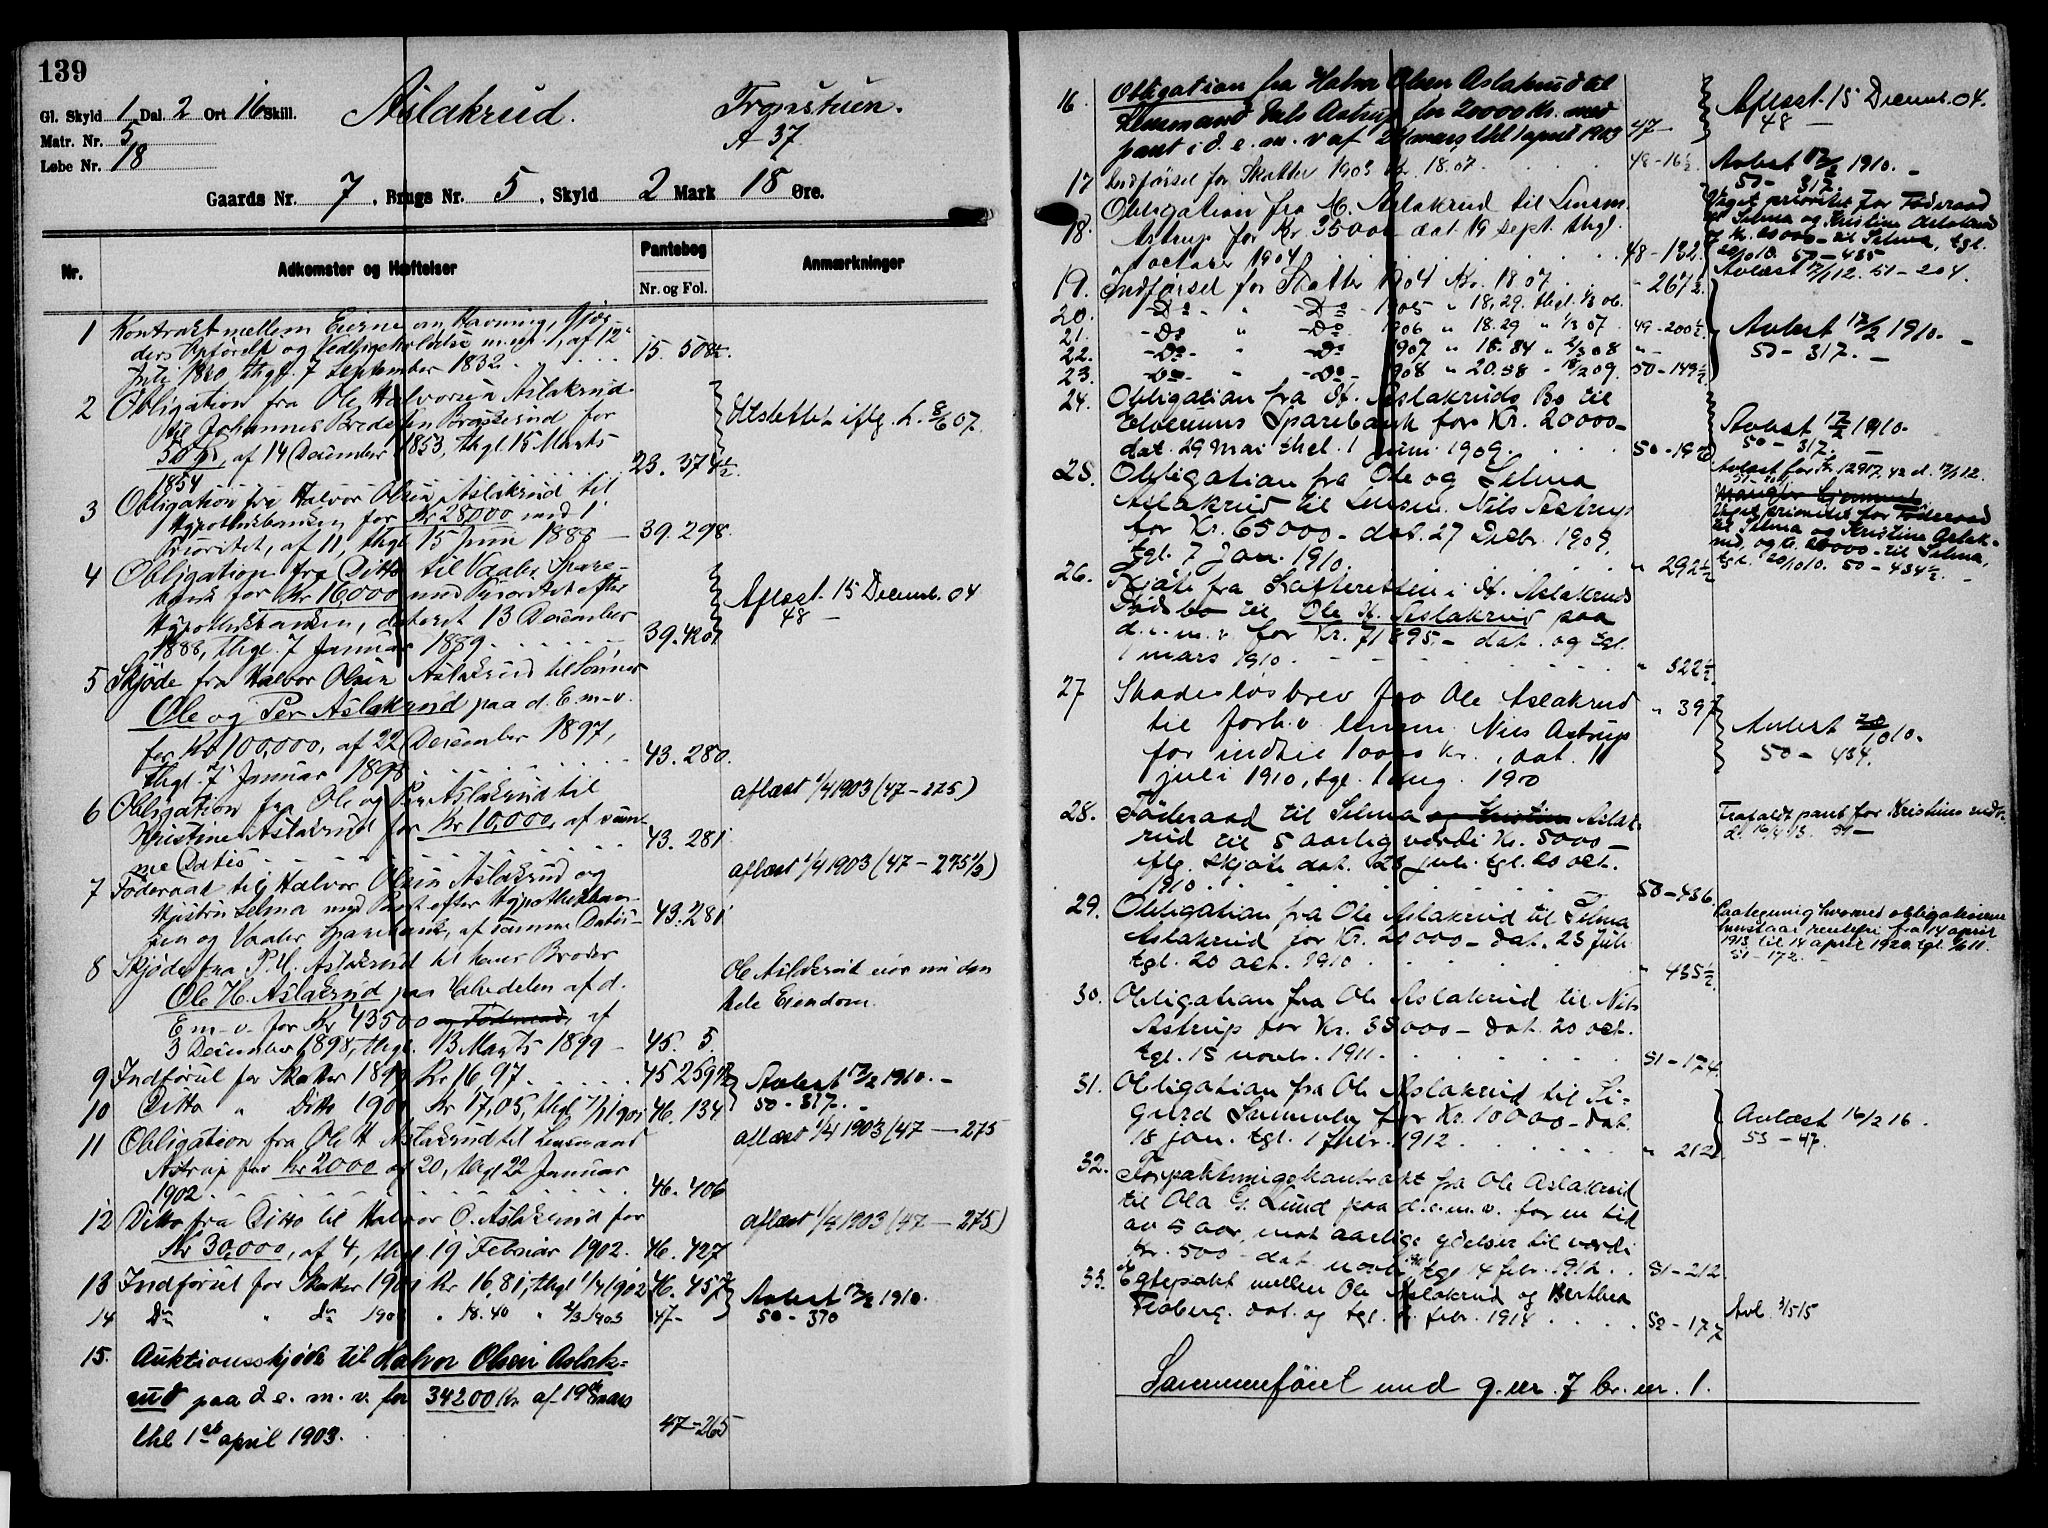 139
Gl. Skyld 1 Dal. 2 Ort 16 Skill.
Aslakrud.
Tronstuen.
A 37
Matr. Nr. 5
Løbe Nr. 18
Gaards Nr. 7, Brugs Nr. 5, Skyld 2 Mark 18 Øre.
Nr. Adkomster og Hæftelser Pantebog Nr. og Fol. Anmærkninger
1 Kontrakt mellem Eierne om Havning, Gjær-
ders Opførelse og Vedligeholdelse m.m., af 12
Juli 1820 thgl. 7 September 1832. 15. 508½.
2 Obligation fra Ole Halvorsen Aslakrud
til Johannes Pedersen for
50 Spd, af 14 December 1853, thgl. 15 Marts
1854 23. 374½ Udslettet iflg. L. 8/6 07.
3 Obligation fra Halvor Olsen Aslakrud til
Hypothekbanken for Kr 28,000 med 1'
Prioritet, af 11, thgl 15 Juni 1888 — 39. 298.
4 Obligation fra Ditto til Vaaler Spare-
bank for Kr 16,000 med Prioritet efter
Hypothekbanken, dateret 13 December
1888, thgl. 7 Januar 1889. 39. 420½ Aflæst 15 Decemb. 04
48 —
5 Skjøde fra Halvor Olsen Aslakrud til Sønner
Ole og Per Aslakrud paa d. E. m-v.
for Kr 100,000, af 22 December 1897,
thgl. 7 Januar 1898 43. 280.
6 Obligation fra Ole og Per Aslakrud til
Kristine Aslakrud for Kr 10,000, af sam-
me Datis 43. 281 aflæst 1/4 1903 (47-275)
7 Føderaad til Halvor Olsen Aslakrud og
Hustru Selma med Pant efter Hypothekban-
ken og Vaaler Sparebank, af samme Datis — 43. 281 aflæst 1/4 1903 (47-275½)
8 Skjøde fra P. H. Aslakrud til hans Broder
Ole H. Aslakrud paa Halvdelen af d.
E. m-v. for Kr 43500 og Føderaad, af
3 December 1898, thgl. 13 Marts 1899 — 45. 5 Ole Aslakrud eier nu den
hele Eiendom.
9 Indførsel for Skatter 1899 Kr 16,97. 45 259½ Avlæst 17/2 1910. —
10 Ditto " Ditto 1900 Kr 17,05, thgl 7/1 1901 46. 134 50-317. —
11 Obligation fra Ole H Aslakrud til Lensmand
Astrup for Kr 2000 af 20, thgl 22 Januar
1902. 46. 406 aflæst 1/4 1903 (47-275
12 Ditto fra Ditto til Halvor O. Aslakrud for
Kr 30,000, af 4, thgl. 19 Februar 1902. 46. 427 aflæst 1/4 1903 (47-275)
13 Indførsel for Skatter 1901 Kr 16.81, thgl 1/4 1902 46. 457½ Avlæst 17/2 1910.
14 Do " do 1902 " 18.40 " 2/3 1903 47- 50-370
15. Auktionsskjøde til Halvor Olsen Aslak-
rud paa d. e. m. v. for 34200 Kr. af 19de mars
thl 1ste april 1903. 47-265
16 Obligation fra Halvor Olsen Aslakrud til
Lensmand Nils Astrup for 20000 Kr. med
pant i d. e. m. v af 21 mars thl 1 april 1903 47- Aflæst 15 Decemb. 04.
48 —
17 Indførsel for Skatter 1903 Kr. 18.07. 48-16½ Avlæst 17/2 1910.
50-317.
18. Obligation fra H. Aslakrud til Lensm.
Astrup for Kr. 35000 dat. 19 sept. thgl.
october 1904 48-132. Veget prioritet for Føderaad
til Selma og Kristine Aslakrud
og Kr. 20000 - til Selma, tgl.
20/10 10. 50-435
Avlæst 17/1 12. 51-204.
19. Indførsel for Skatter 1904 Kr. 18 07 - 267½
20. -Do- " -Do- 1905 " 18,29. thgl. 1/3 06.
21. -Do " -Do- 1906 " 18.29 " 1/3 07. 49-200½ Avlæst 17/2 1910. —
22. -Do- " -Do- 1907 " 18.84 " 2/3 08 " - 50-317. —
23. -Do- " -Do- 1908 " 20.58 " 18/2 09. 50-149½
24. Obligation fra H. Aslakruds Bo til
Elverums Sparebank for Kr. 20000-
dat. 29 Mai thgl. 1 juni 1909. 50-19 Avlæst 17/2 1910.
50-317.
25. Obligation fra Ole og Selma
Aslakrud til Lensm. Nils Astrup
for Kr. 65000 - dat. 27 Decbr. 1909,
tgl. 7 Jan. 1910. " 292½ Avlæst for Kr. 12917,42 d. 17/1 12.
Veget prioritet for Føderaad
til Selma og Kristine Aslak-
rud, og Kr. 20000 - til Selma,
tgl. 20/10 10. 50-434½. —
26. Skjøte fra Skifteretten i H. Aslakruds
Dødsbo til Ole H. Aslakrud paa
d. e. m. v. for Kr. 71895.- dat. og tgl.
1 mars 1910. " 322½
27 Skadesløsbrev fra Ole Aslakrud
til forh.v. lensm. Nils Astrup
for indtil 10000 Kr., dat. 11
juli 1910, tgl. 1 aug. 1910 " 397 Avlæst 20/10 10.
50-434.
28. Føderaad til Selma og Kristine Aslak-
rud til 5 aarlig værdi Kr. 5000 -
iflg. skjøte dat. 23 juli tgl. 20 oct.
1910. 50-436. Frafaldt pant for Kristines vedk.
29. Obligation fra Ole Aslakrud til Selma
Aslakrud for Kr. 20000 - dat. 23 juli
tgl. 20 oct. 1910 " 435½ Paategning hvorved obligationen
henstaar rentefri fra 14 april
1913 til 14 april 1920
51-172. -
30. Obligation fra Ole Aslakrud til Nils
Astrup for Kr. 35000 - dat. 20 oct.
tgl. 15 novbr. 1911. 51-174
31. Obligation fra Ole Aslakrud til Si-
gurd for Kr. 10000 - dat.
18 jan. tgl. 1 febr. 1912 " 212 Avlæst 16/2 16.
53-47.
32. Forpaktningskontrakt fra Ole Aslakrud
til Ola E. Lund paa d. e. m. v. for en tid
av 5 aar, mot aarlige ydelser til værdi
Kr. 500 - dat. novbr. tgl 14 febr. 1912. 51-212
33. Egtepakt mellem Ole Aslakrud og Berthea
dat. og tgl. febr. 1914 52-177 Avl. 3/5 15
Sammenføiet med g.nr. 7 br.nr. 1.